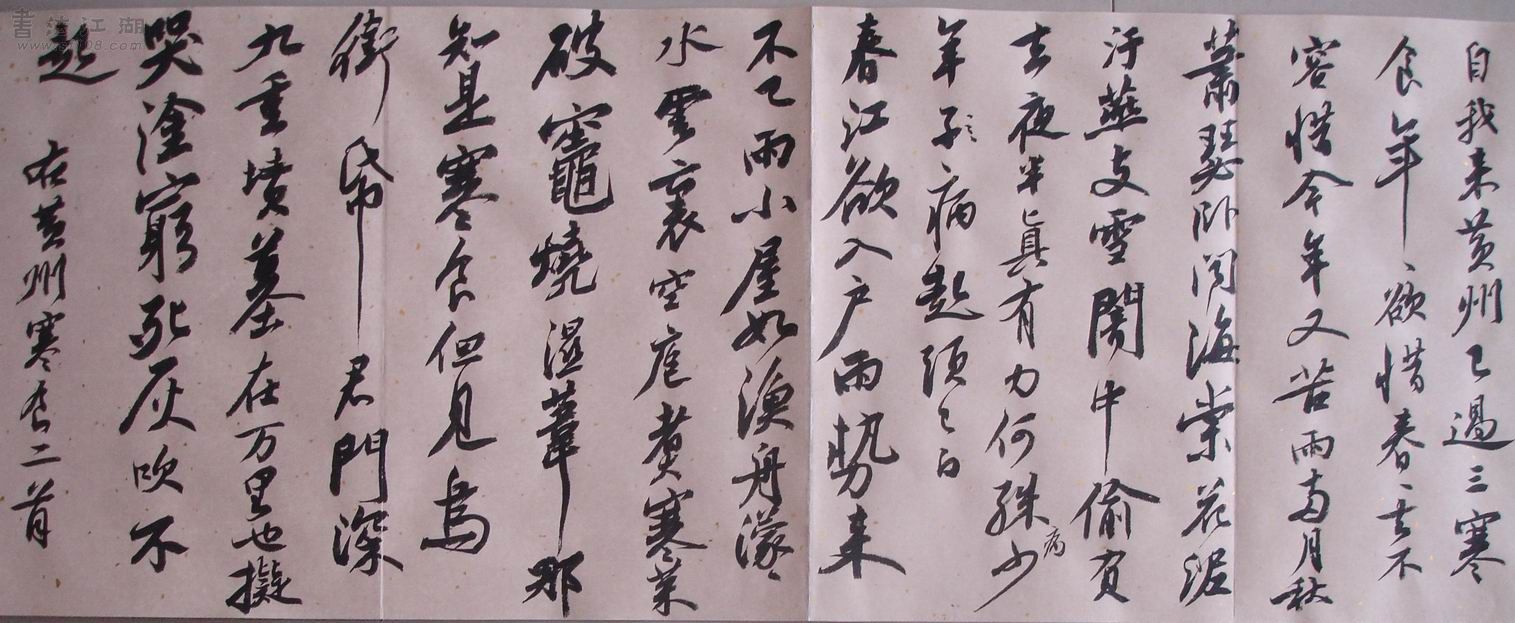 自我来黄州已過三寒
食年〻欲惜春〻去不
容惜今年又苦雨兩月秋
蕭瑟卧聞海棠花泥
汙燕支雪闇中偷負
去夜半真有力何殊病少
年子病起頭已白
春江欲入戶雨勢来
不已雨小屋如漁舟濛〻
水雲裏空庖煮寒菜
破竈燒濕葦那
知是寒食但見烏
銜帋君門深
九重墳墓在万里也擬
哭塗窮死灰吹不
起
右黄州寒食二首
書法江湖
www.sf108.com